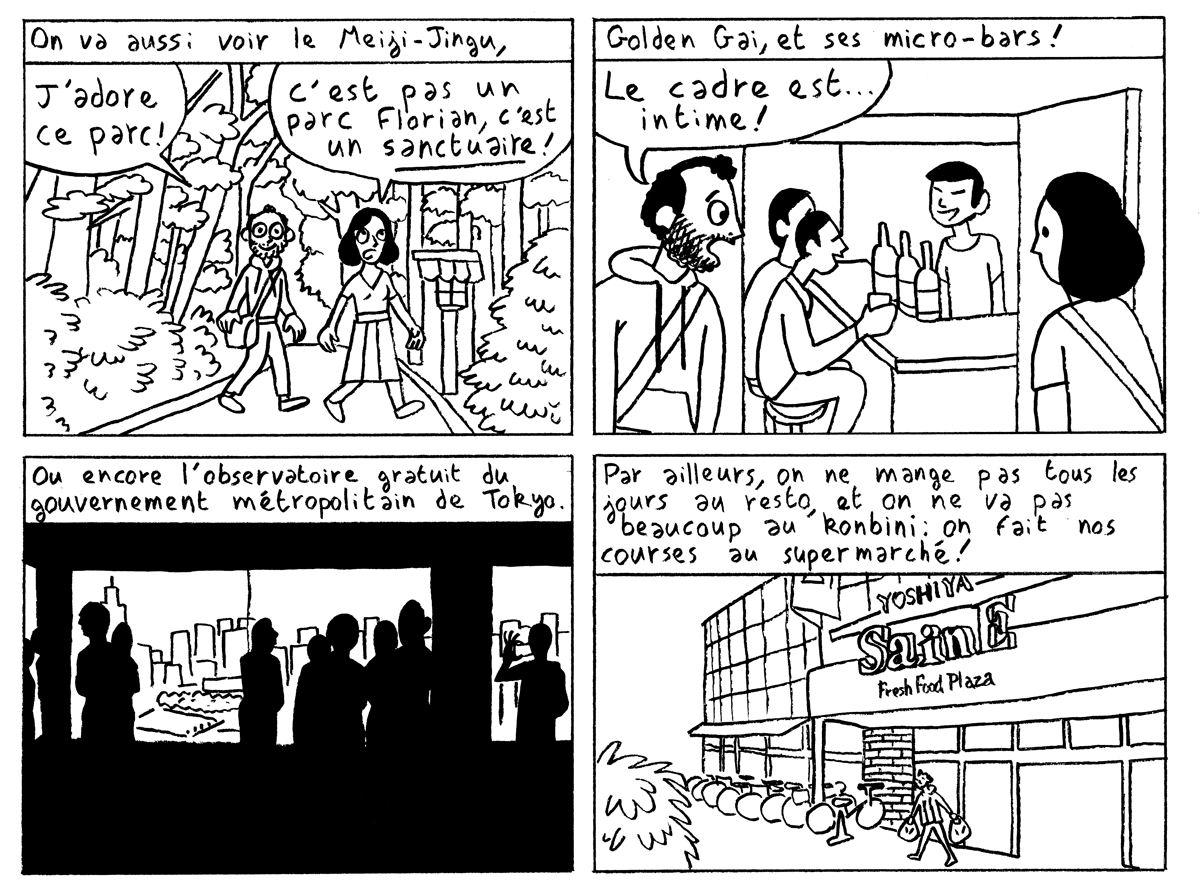 On va aussi voir le Meiji-Jingu,
J'adore
ce parc!
c'est pas un
parc Florian, c'est
un sanctuaire!
Golden Gai, et ses micro-bars!
Le cadre est...
intime!
Ou encore l'observatoire gratuit du
gouvernement métropolitain de Tokyo.
Par ailleurs, on ne mange pas tous les
jours au resto, et on ne va pas
beaucoup au konbini: on fait nos
courses au supermarché!
YOSHIYA
SainE
Fresh Food Plaza